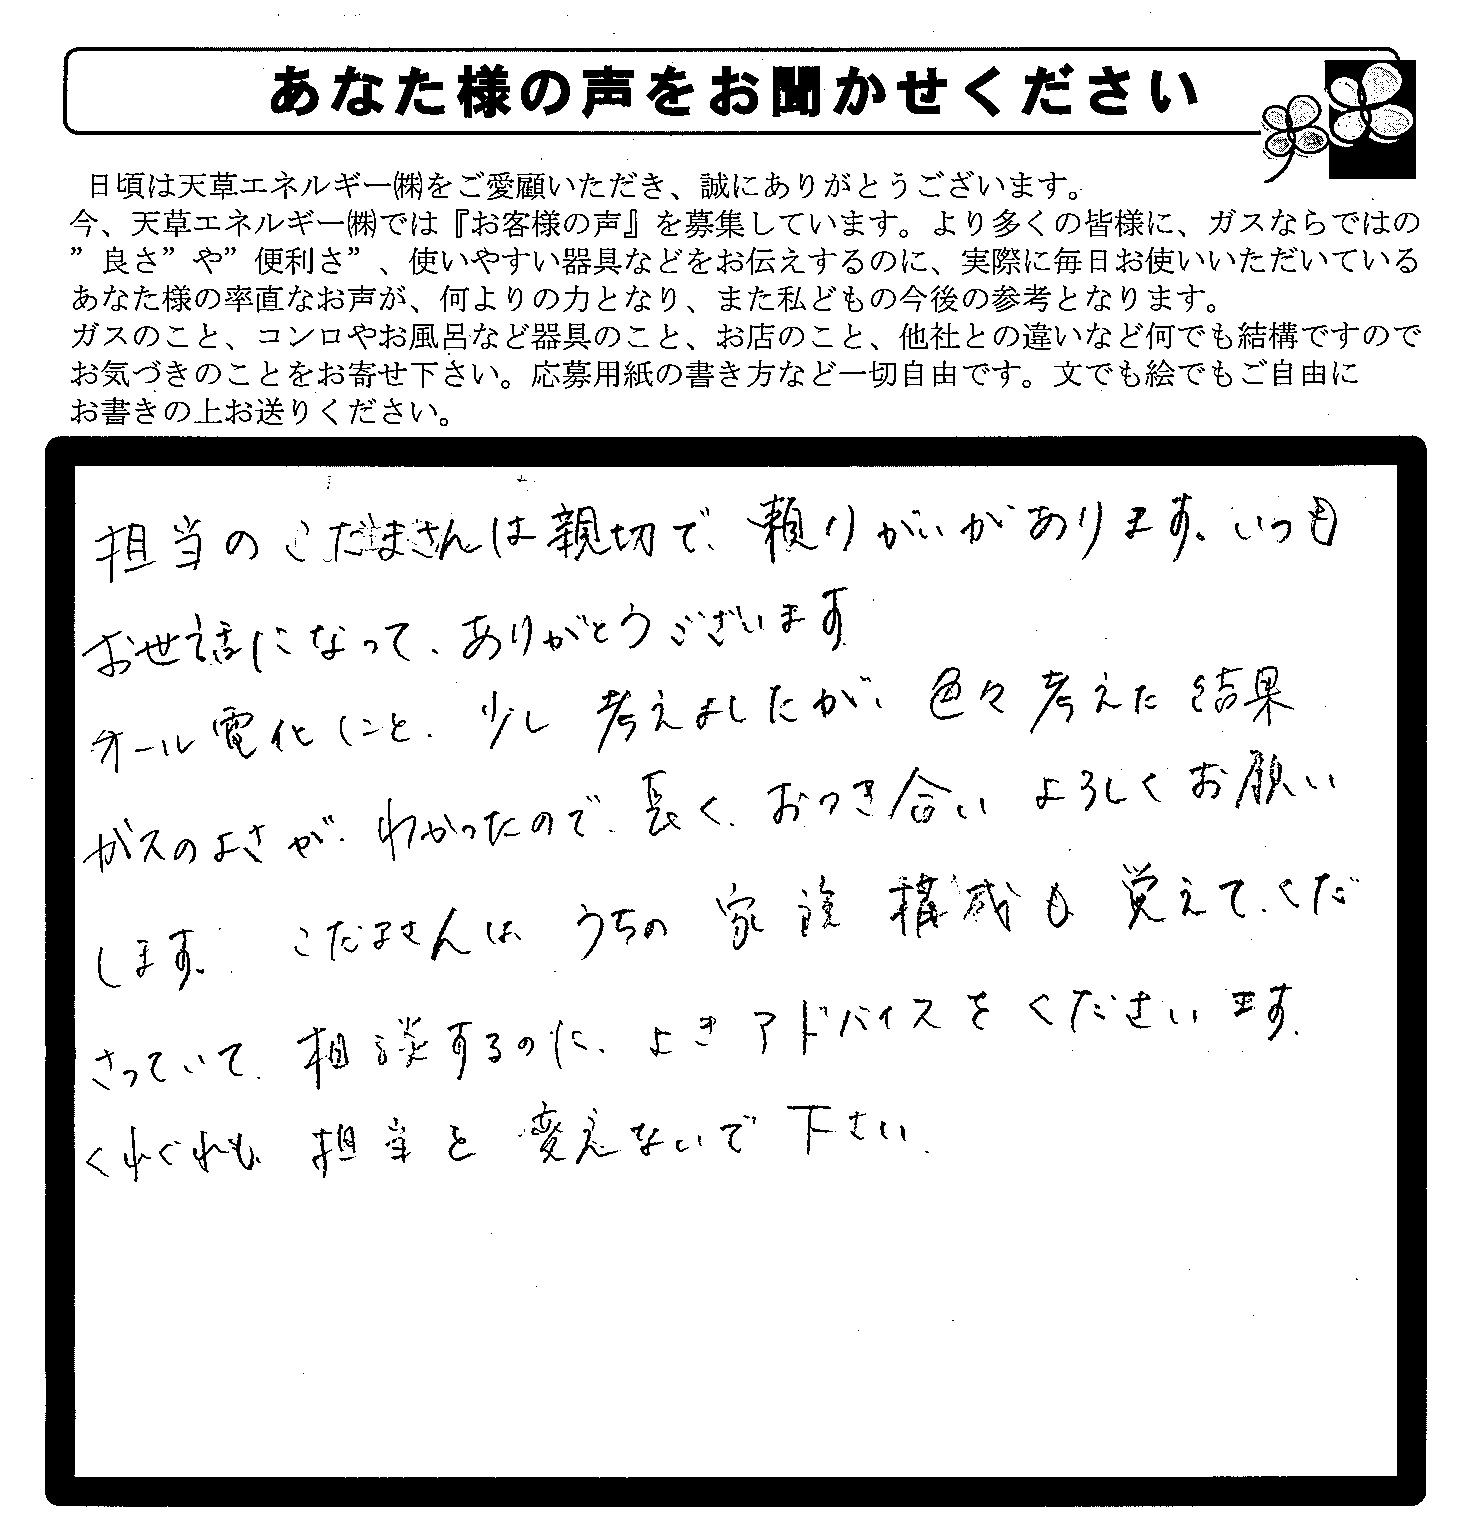 あなた様の声をお聞かせください
日頃は天草エネルギー㈱をご愛顧いただき、誠にありがとうございます。
今、天草エネルギー㈱では『お客様の声』を募集しています。より多くの皆様に、ガスならではの
”良さ”や”便利さ”、使いやすい器具などをお伝えするのに、実際に毎日お使いいただいている
あなた様の率直なお声が、何よりの力となり、また私どもの今後の参考となります。
ガスのこと、コンロやお風呂など器具のこと、お店のこと、他社との違いなど何でも結構ですので
お気づきのことをお寄せ下さい。応募用紙の書き方など一切自由です。文でも絵でもご自由に
お書きの上お送りください。
担当のこだまさんは親切で、頼りがいがあります。いつも
お世話になって、ありがとうございます
オール電化にと、少し考えましたが、色々考えた結果
ガスのよさが、わかったので、長く、おつき合いよろしくお願い
します。こだまさんは、うちの家族構成も覚えて、くだ
さっていて、相談するのに、よきアドバイスをくださいます。
くれぐれも、担当を変えないで下さい。